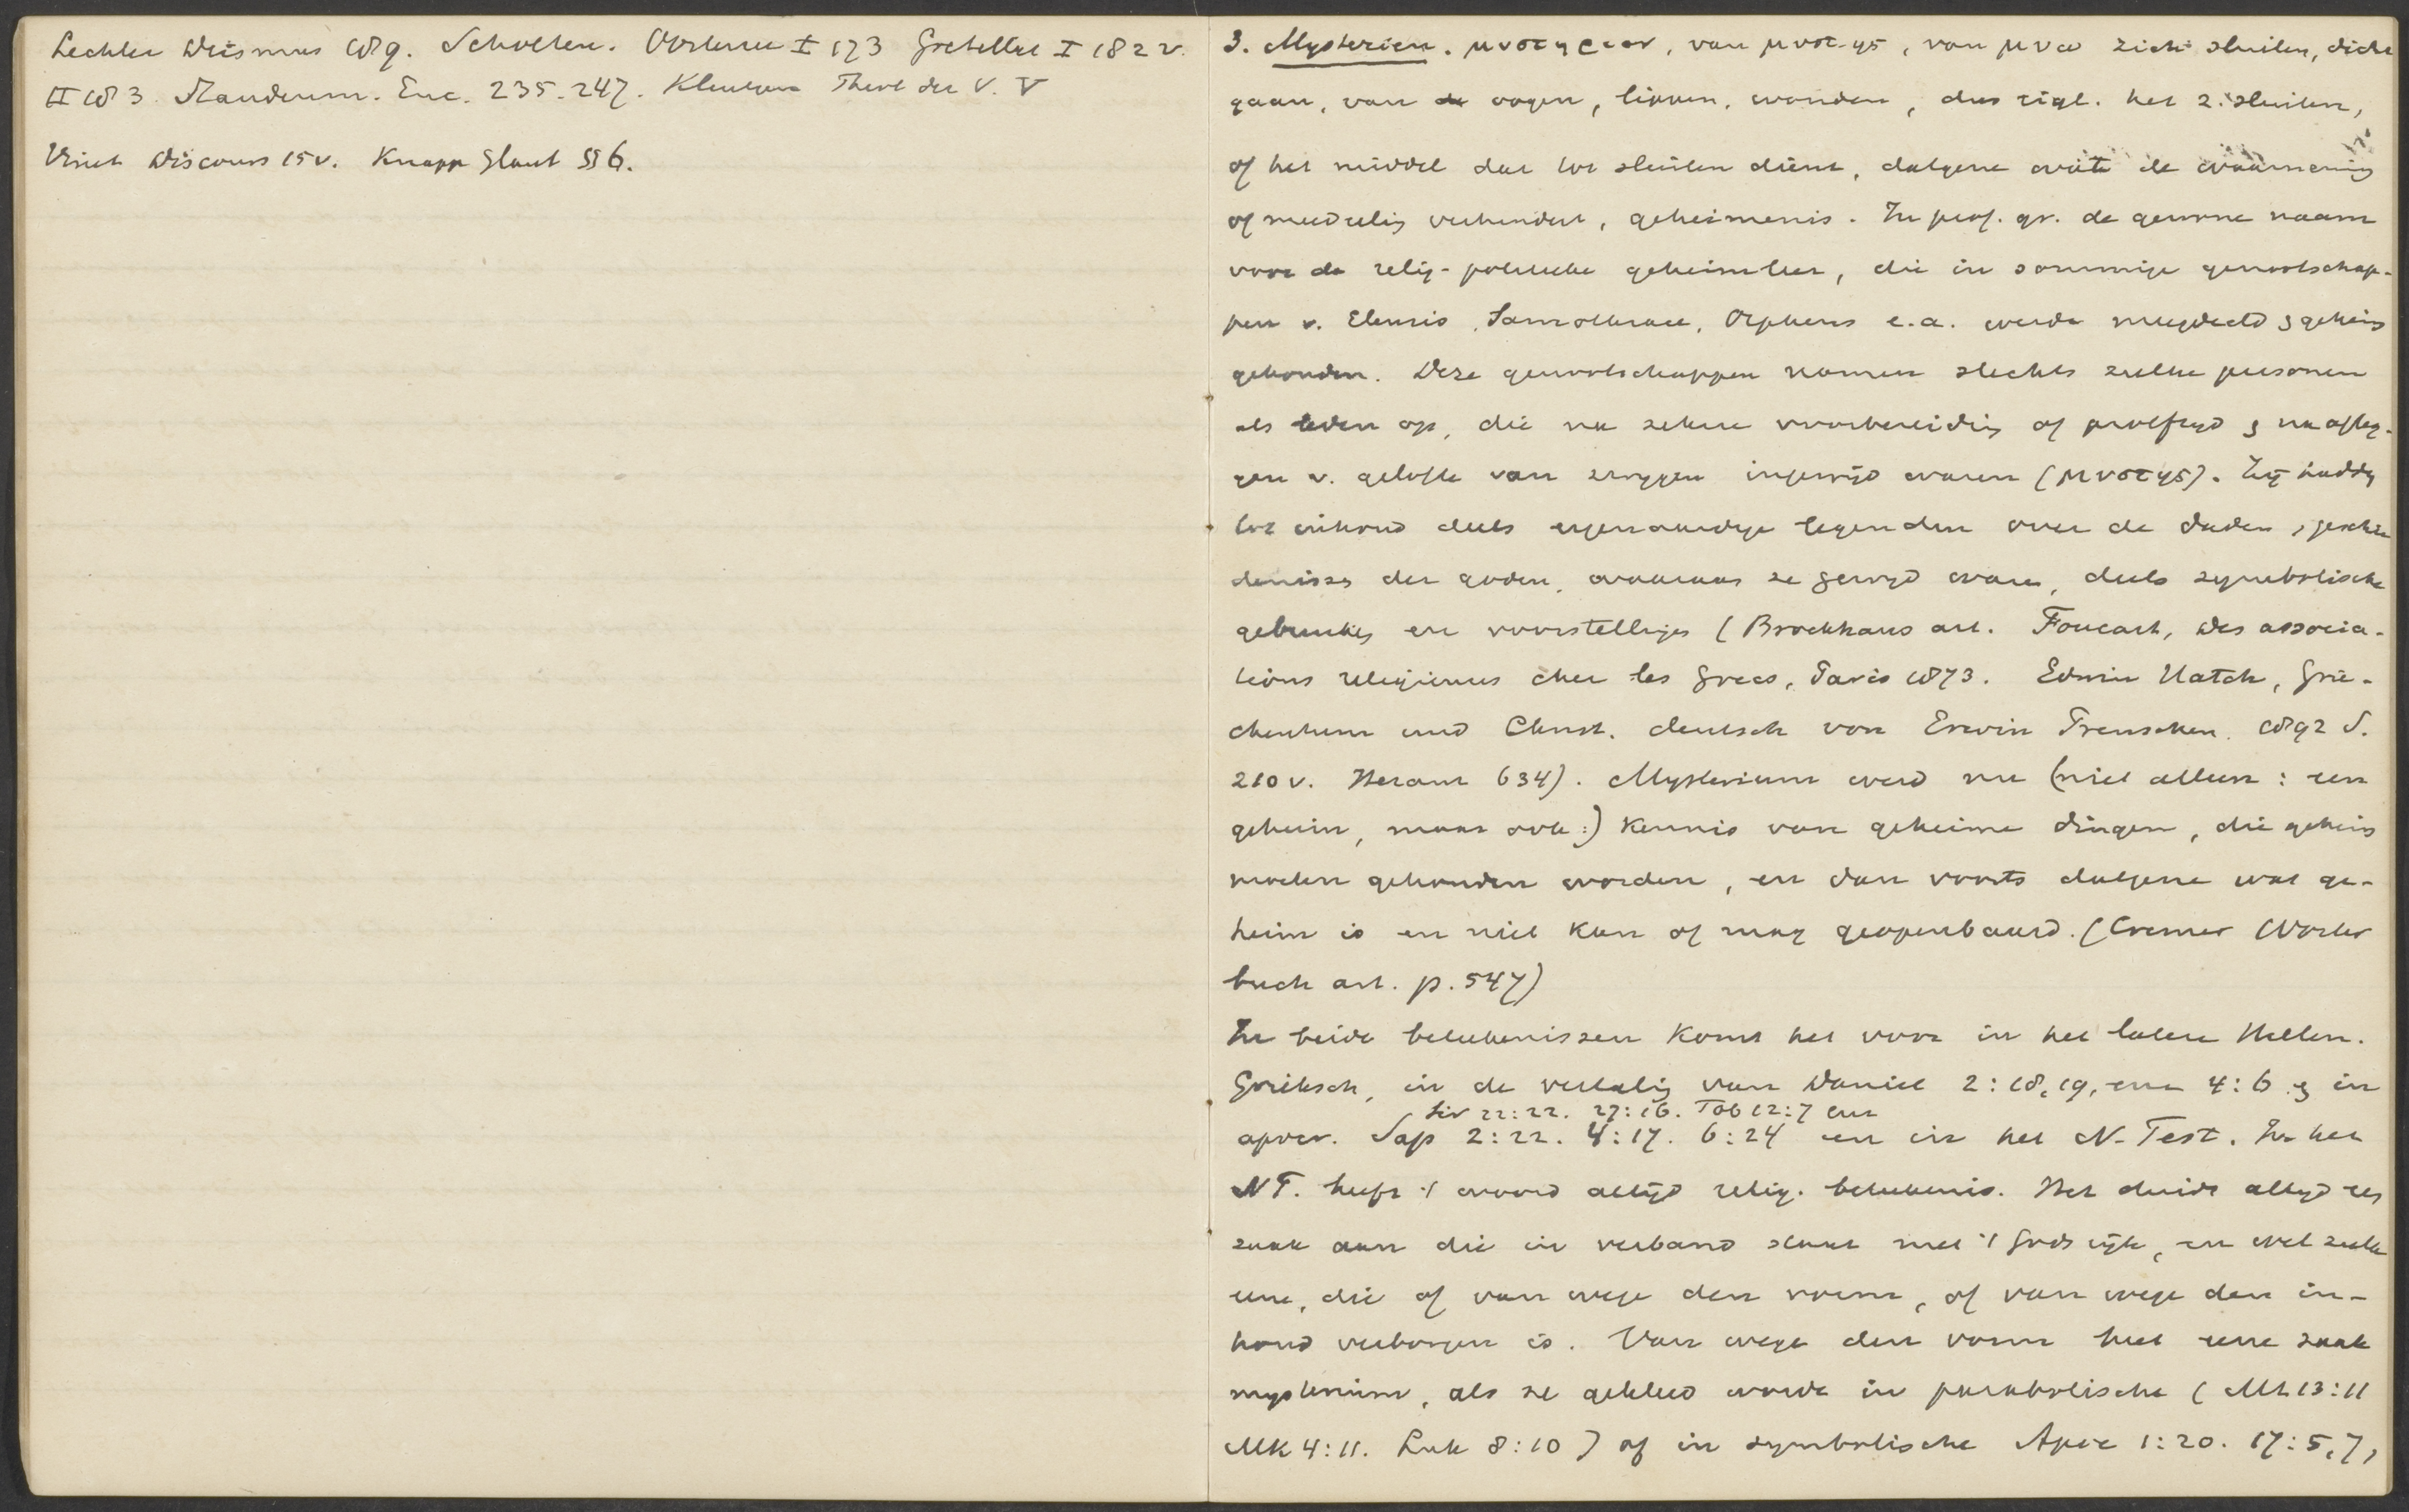 Lechler Deismus 189. Scholten. Oorlerer I 173 Gretillat I 182 v.
II 183. Staudenm. Enc. 235-247. Kleutgen Theol der V. V
Vinet Discours 15 v. Knapp Glaub § 6.
3. Mysterien. μυστηριον, van μυστης, van μυω zich sluiten, dicht
gaan, van oogen, lippen, wonden, dus eigl. het z. sluiten,
of het middel dat tot sluiten dient, datgene wat de waarneming
of meedeling verhindert, geheimenis. In prof. gr. de gewone naam
voor de relig-politieke geheimleer, die in sommige genootschap-
pen v. Eleusis, Samothrace, Orpheus e.a. werden meegedeeld & geheim
gehouden. Deze genootschappen namen slechts zulke personen
als leden op, die na zekere voorbereiding of proeftyd & na afleg-
gen v. gelofte van zwygen ingewijd waren (μυστης). Zij hadden
tot inhoud deels eigenaardige legenden over de daden, geschie
denissen der goden, waaraan ze gewyd waren, deels symbolische
gebruiken en voorstellingen (Brockhaus art. Foucart, Des associa-
tions religieuses chez les Grecs, Paris 1873. Edwin Hatch, Grie-
chentum und Christ. deutsch von Erwin Preuschen. 1892 S.
210 v. Heraut 634). Mysterium werd nu (niet alleen: een
geheim, maar ook:) kennis van geheime dingen, die geheim
moeten gehouden worden, en dan voorts datgene wat ge-
heim is en niet kan of mag geopenbaard. (Cremer Wörter
buch art. p. 547)
In beide beteekenissen komt het voor in het latere Hellen.
Grieksch, in de vertaling van Daniel 2:18,19, enz 4:6 & in
Sir 22:22. 27:16. Tob 12:7 enz
apocr. Sap 2:22. 4:17. 6:24 en in het N-Test. In het
NT. heeft 't woord altijd relig. beteekenis. Het duidt altyd een
zaak aan die in verband staat met 't Gods rijk, en wel zulk
eene, die of van wege den vorm, of van wege den in-
houd verborgen is. Van wege den vorm heet eene zaak
mysterium, als ze gekleed wordt in parabolische (Mt 13:11
Mk 4:11. Luk 8:10) of in symbolische Apoc 1:20. 17:5,7,